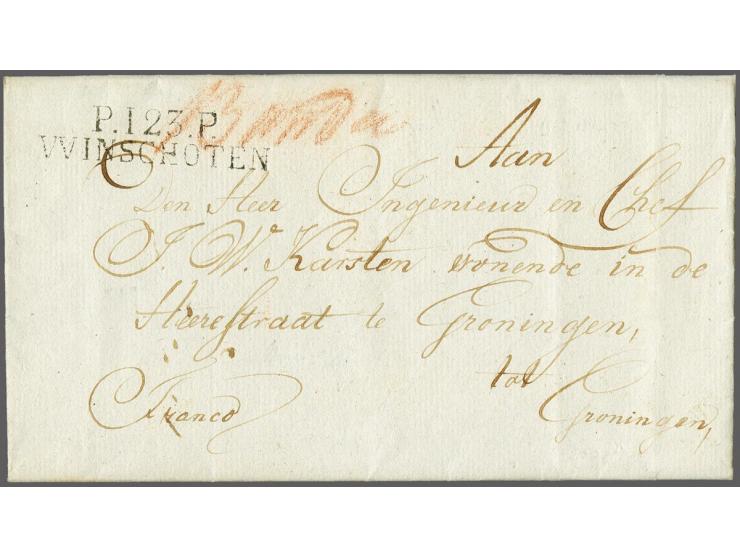 P.123.P.
WINSCHOTEN
Aan
Den Heer Ingenieur en Chef
J. W. Karsten wonende in de
Heerestraat te Groningen,
tot
Franco
Groningen,